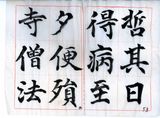 哲其日
得病至
夕便殞
寺僧法